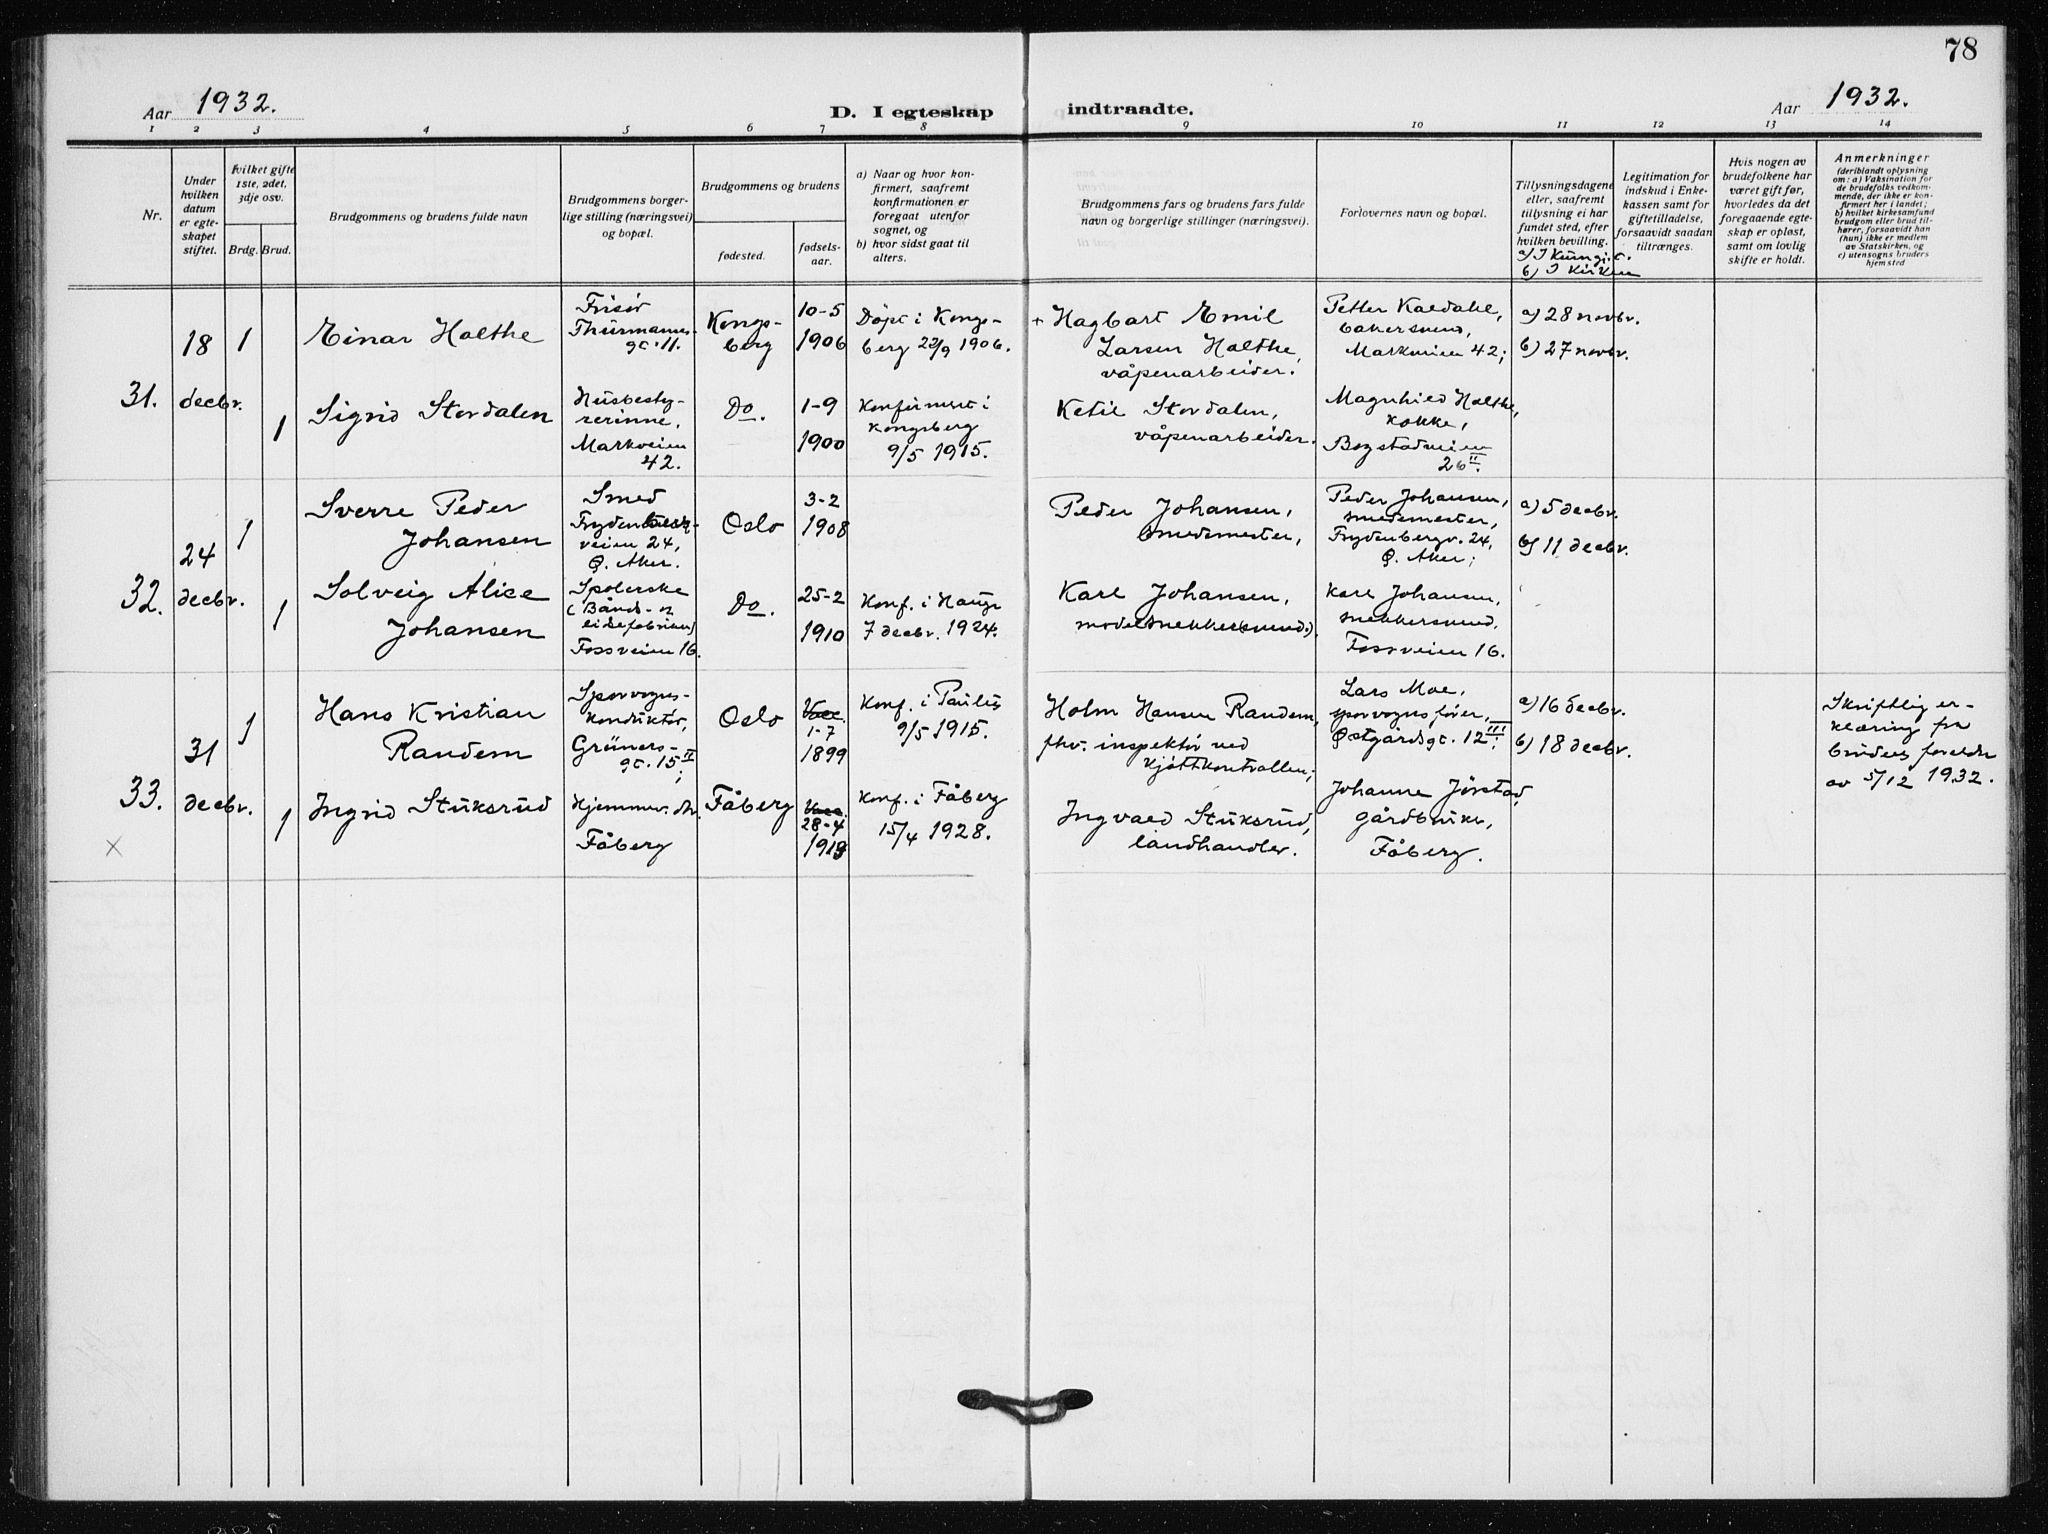 78
Aar 1932.
D. I egteskap indtraadte.
Aar 1932.
1 2 3 4 5 6 7 8 9 10 11 12 13 14
Nr.
Under
hvilken
datum
er egte-
skapet
stiftet.
Hvilket gifte
1ste, 2det,
3dje osv.
Brdg. Brud.
Brudgommens og brudens fulde navn
Brudgommens borger-
lige stilling (næringsvei)
og bopæl.
Brudgommens og brudens
fødested.
fødsels-
aar.
a) Naar og hvor kon-
firmert, saafremt
konfirmationen er
foregaat utenfor
sognet, og
b) hvor sidst gaat til
alters.
Brudgommens fars og brudens fars fulde
navn og borgerlige stillinger (næringsvei).
Forlovernes navn og bopæl.
Tillysningsdagene
eller, saafremt
tillysning ei har
fundet sted, efter
hvilken bevilling.
b) I Kirken
Legitimation for
indskud i Enke-
kassen samt for
giftetilladelse,
forsaavidt saadan
tiltrænges.
Hvis nogen av
brudefolkene har
været gift før,
hvorledes da det
foregaaende egte-
skap er opløst,
samt om lovlig
skifte er holdt.
Anmerkninger
(deriblandt oplysning
om: a) Vaksination for
de brudefolks vedkom-
mende, der ikke er kon-
firmert her i landet;
b) hvilket kirkesamfund
brudgom eller brud til-
hører, forsaavidt han
(hun) ikke er medlem
av Statskirken, og
c) utensogns bruders
hjemsted
31.
18
decbr.
1
Einar Holthe
Frisør
Thurmannes-
gt. 11.
Kongs-
berg
10-5
1906
Døpt i Kongs-
berg 23/9 1906.
+ Hagbart Emil
Larsen Holthe,
våpenarbeider.
Petter Kaldahl,
bakersvend,
Markveien 42;
a) 28 novbr.
b) 27 novbr.
1
Sigrid Stordalen
Husbesty-
rerinne,
Markveien
42.
Do.
1-9
1900
Konfirmert i
Kongsberg
9/5 1915.
Ketil Stordalen,
våpenarbeider.
Magnhild Holthe,
kokke,
Bogstadveien
26 II.
32.
24
decbr.
1
Sverre Peder
Johansen
Smed
veien 24,
Ø. Aker.
Oslo
3-2
1908
Peder Johansen,
smedmester,
Peder Johansen,
smedmester,
Frydenbergv. 24,
Ø. Aker;
a) 5 decbr.
b) 11 decbr.
1
Solveig Alice
Johansen
Spolerske
(Bånd- og
lidsefabrikken)
Fossveien 16.
Do.
25-2
1910
Konf. i Hauge
7 decbr. 1924.
Karl Johansen,
modelsnekker(svend).
Karl Johansen,
snekkersvend,
Fossveien 16.
33.
31
decbr.
1
Hans Kristian
Randem
Sporvogns-
konduktør,
Grüners-
gt. 15 II;
Oslo
1-7
1899
Konf. i Paulus
9/5 1915.
Holm Hansen Randem,
fhv. inspektør ved
kjøttkontrollen;
Lars Moe,
sporvognsfører,
Østgårdsgt. 12 III;
a) 16 decbr.
b) 18 decbr.
Skriftlig er-
klæring fra
brudens foreldre
av 5/12 1932.
1
Ingrid Stuksrud
Hjemmev. dtr.
Fåberg
Fåberg
28-4
1913
Konf. i Fåberg
15/4 1928.
Ingvald Stuksrud,
landhandler.
Johanne Jørstad,
gårdbruker,
Fåberg.
x